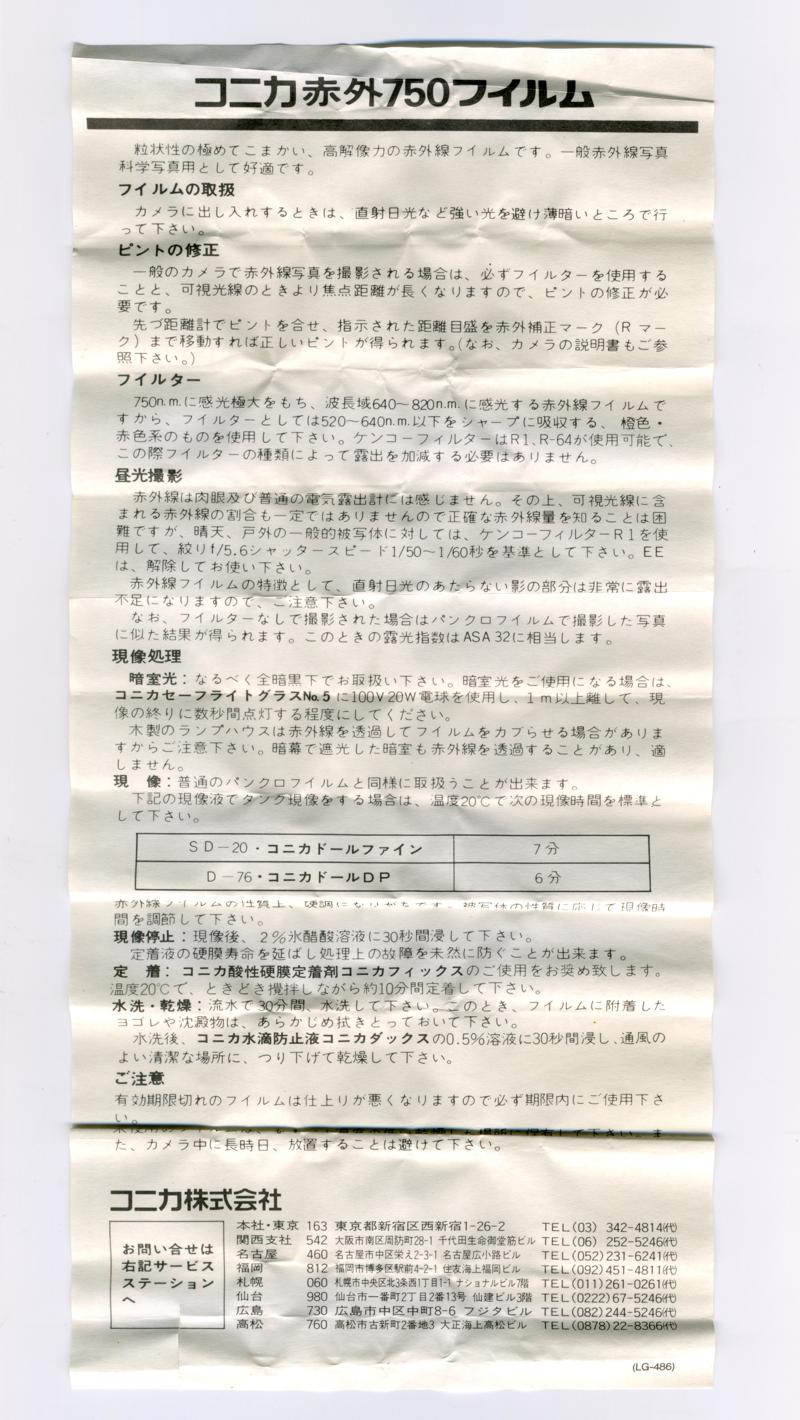 コニカ赤外750フイルム
粒状性の極めてこまかい、高解像力の赤外線フイルムです。一般赤外線写真
科学写真用として好適です。
フイルムの取扱
カメラに出し入れするときは、直射日光など強い光を避け薄暗いところで行
って下さい。
ピントの修正
一般のカメラで赤外線写真を撮影される場合は、必ずフイルターを使用する
ことと、可視光線のときより焦点距離が長くなりますので、ピントの修正が必
要です。
先づ距離計でピントを合せ、指示された距離目盛を赤外補正マーク(R マー
ク)まで移動すれば正しいピントが得られます。(なお、カメラの説明書もご参
照下さい。)
フイルター
750n.m.に感光極大をもち、波長域640〜820n.m.に感光する赤外線フイルムで
すから、フイルターとしては520〜640n.m.以下をシャープに吸収する、橙色・
赤色系のものを使用して下さい。ケンコーフィルターはR1、R-64が使用可能で、
この際フイルターの種類によって露出を加減する必要はありません。
昼光撮影
赤外線は肉眼及び普通の電気露出計には感じません。その上、可視光線に含
まれる赤外線の割合も一定ではありませんので正確な赤外線量を知ることは困
難ですが、晴天、戸外の一般的被写体に対しては、ケンコーフィルターR1を使
用して、絞りf/5.6シャッタースピード1/50〜1/60秒を基準として下さい。EE
は、解除してお使い下さい。
赤外線フイルムの特徴として、直射日光のあたらない影の部分は非常に露出
不足になりますので、ご注意下さい。
なお、フイルターなしで撮影された場合はパンクロフイルムで撮影した写真
に似た結果が得られます。このときの露光指数はASA 32に相当します。
現像処理
暗室光：なるべく全暗黒下でお取扱い下さい。暗室光をご使用になる場合は、
コニカセーフライトグラスNo.5に100V20W電球を使用し、1m以上離して、現
像の終りに数秒間点灯する程度にしてください。
木製のランプハウスは赤外線を透過してフイルムをカブらせる場合がありま
すからご注意下さい。暗幕で遮光した暗室も赤外線を透過することがあり、適
しません。
現　像：普通のパンクロフイルムと同様に取扱うことが出来ます。
下記の現像液でタンク現像をする場合は、温度20℃で次の現像時間を標準と
して下さい。
SD-20・コニカドールファイン　7分
D-76・コニカドールDP　6分
赤外線フイルムの性質上、硬調になりがちです。被写体の性質に応じて現像時
間を調節して下さい。
現像停止：現像後、2％氷醋酸溶液に30秒間浸して下さい。
定着液の硬膜寿命を延ばし処理上の故障を未然に防ぐことが出来ます。
定　着：コニカ酸性硬膜定着剤コニカフィックスのご使用をお奨め致します。
温度20℃で、ときどき攪拌しながら約10分間定着して下さい。
水洗・乾燥：流水で30分間、水洗して下さい。このとき、フイルムに附着した
ヨゴレや沈澱物は、あらかじめ拭きとっておいて下さい。
水洗後、コニカ水滴防止液コニカダックスの0.5％溶液に30秒間浸し、通風の
よい清潔な場所に、つり下げて乾燥して下さい。
ご注意
有効期限切れのフイルムは仕上りが悪くなりますので必ず期限内にご使用下さ
い。
場所に保存して下さい。ま
た、カメラ中に長時日、放置することは避けて下さい。
コニカ株式会社
お問い合せは
右記サービス
ステーション
へ
本社・東京 163 東京都新宿区西新宿1-26-2 TEL(03) 342-4814(代)
関西支社 542 大阪市南区周防町28-1 千代田生命御堂筋ビル TEL(06) 252-5246(代)
名古屋 460 名古屋市中区栄え2-3-1 名古屋広小路ビル TEL(052)231-6241(代)
福岡 812 福岡市博多区駅前4-2-1 住友海上福岡ビル TEL(092)451-4811(代)
札幌 060 札幌市中央区北3条西1丁目1-1 ナショナルビル7階 TEL(011)261-0261(代)
仙台 980 仙台市一番町2丁目2番13号 仙建ビル3階 TEL(0222)67-5246(代)
広島 730 広島市中区中町8-6 フジタビル TEL(082)244-5246(代)
高松 760 高松市古新町2番地3 大正海上高松ビル TEL(0878)22-8366(代)
(LG-486)